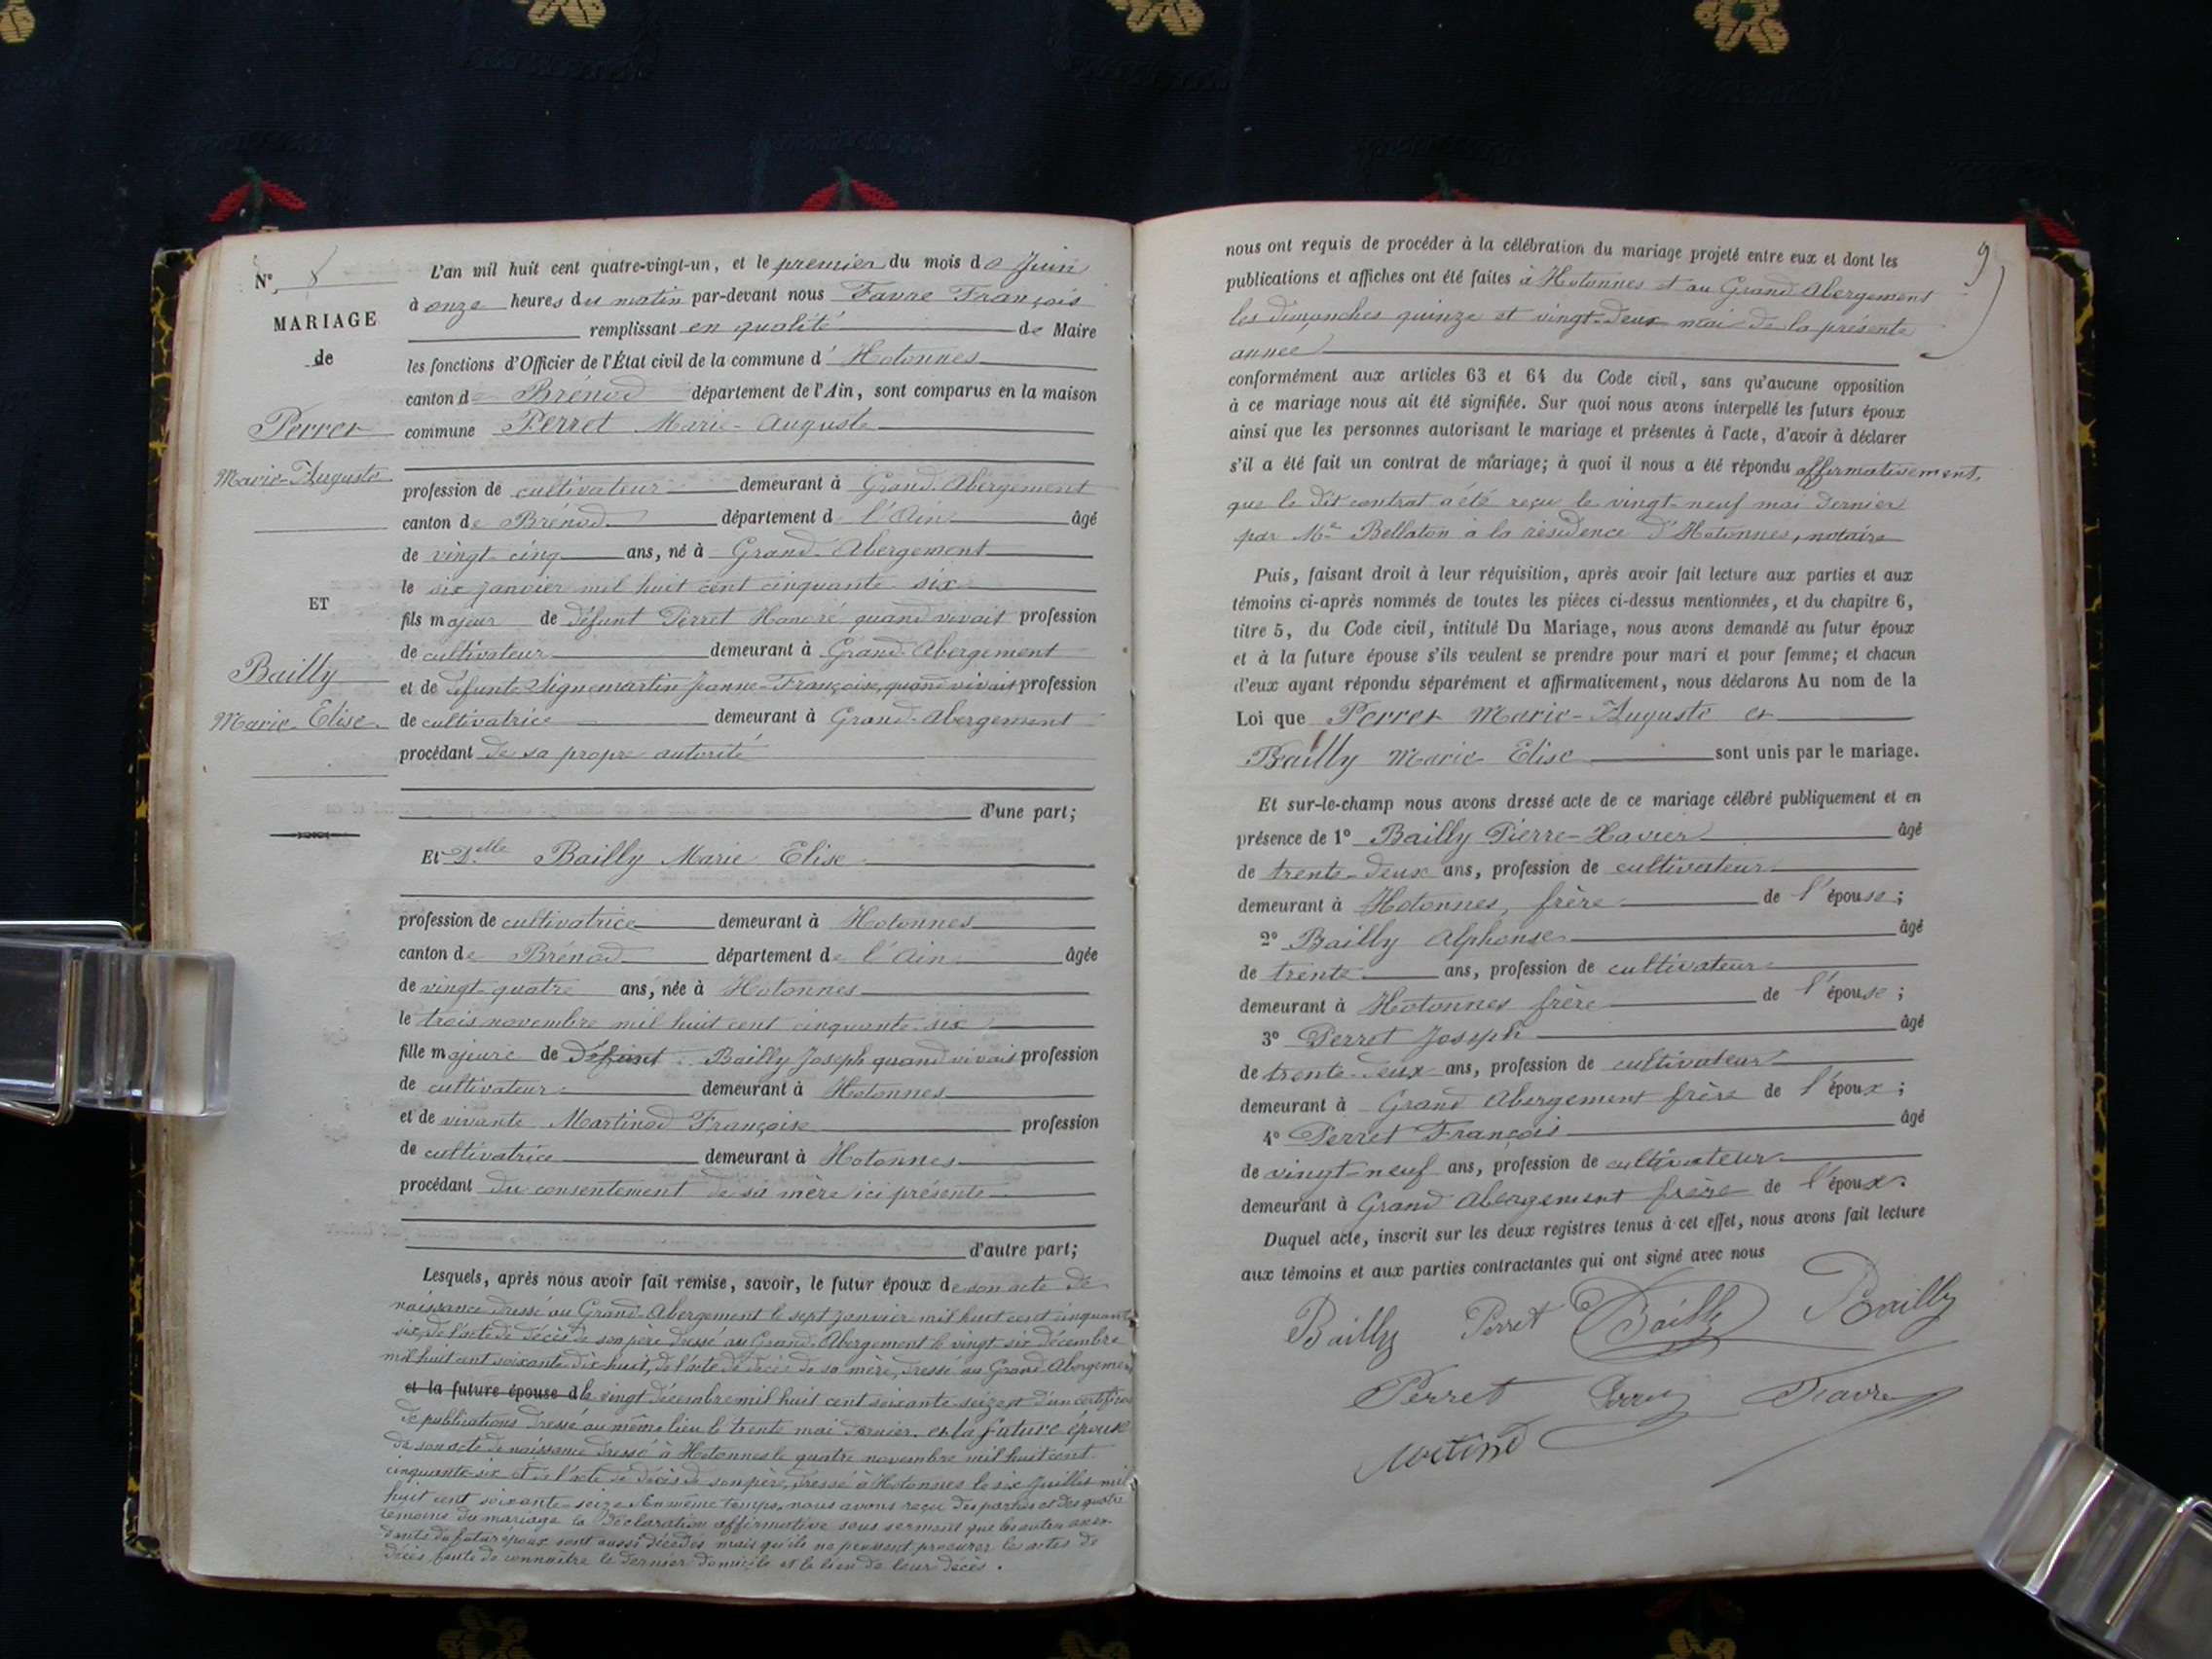 N° 8
MARIAGE
de
Perret
Marie-Auguste
ET
Bailly
Marie Elise
L'an mil huit cent quatre-vingt-un, et le premier du mois de Juin
à onze heures du matin par-devant nous Favre François
remplissant en qualité de Maire
les fonctions d'Officier de l'État civil de la commune d' Hotonnes
canton de Brénod département de l'Ain, sont comparus en la maison
commune Perret Marie-Auguste
profession de cultivateur demeurant à Grand-Abergement
canton de Brénod département de l'Ain âgé
de vingt cinq ans, né à Grand-Abergement
le six janvier mil huit cent cinquante-six
fils majeur de défunt Perret Honoré quand vivait profession
de cultivateur demeurant à Grand-Abergement
et de défunte Signemartin Jeanne-Françoise, quand vivait profession
de cultivatrice demeurant à Grand-Abergement
procédant de sa propre autorité
d'une part;
Et Delle Bailly Marie Elise
profession de cultivatrice demeurant à Hotonnes
canton de Brénod département de l'Ain âgée
de vingt-quatre ans, née à Hotonnes
le trois novembre mil huit cent cinquante-six
fille majeure de défunt Bailly Joseph quand vivait profession
de cultivateur demeurant à Hotonnes
et de vivante Martinod Françoise profession
de cultivatrice demeurant à Hotonnes
procédant du consentement de sa mère ici présente
d'autre part;
Lesquels, après nous avoir fait remise, savoir, le futur époux de son acte de
naissance dressé au Grand-Abergement le sept janvier mil huit cent cinquante
six, de l'acte de décès de son père dressé au Grand-Abergement le vingt-six décembre
mil huit cent soixante-dix-huit, de l'acte de décès de sa mère, dressé au Grand-Abergement
et la future épouse d le vingt décembre mil huit cent soixante-seize et d'un certificat
de publications dressé au même lieu le trente mai dernier. et la future épouse
de son acte de naissance dressé à Hotonnes le quatre novembre mil huit cent
cinquante-six et de l'acte de décès de son père, dressé à Hotonnes le six juillet mil
huit cent soixante-seize. En même temps, nous avons reçu des parties et des quatre
témoins du mariage la déclaration affirmative sous serment que les autres ascen-
dants du futur époux sont aussi décédés mais qu'ils ne peuvent procurer les actes de
décès, faute de connaître le dernier domicile et le lieu de leur décès.
9
nous ont requis de procéder à la célébration du mariage projeté entre eux et dont les
publications et affiches ont été faites à Hotonnes et au Grand Abergement
les dimanches quinze et vingt-deux mai de la présente
année
conformément aux articles 63 et 64 du Code civil, sans qu'aucune opposition
à ce mariage nous ait été signifiée. Sur quoi nous avons interpellé les futurs époux
ainsi que les personnes autorisant le mariage et présentes à l'acte, d'avoir à déclarer
s'il a été fait un contrat de mariage; à quoi il nous a été répondu affirmativement,
que le dit contrat a été reçu le vingt-neuf mai dernier
par Me Bellaton à la résidence d'Hotonnes, notaire
Puis, faisant droit à leur réquisition, après avoir fait lecture aux parties et aux
témoins ci-après nommés de toutes les pièces ci-dessus mentionnées, et du chapitre 6,
titre 5, du Code civil, intitulé Du Mariage, nous avons demandé au futur époux
et à la future épouse s'ils veulent se prendre pour mari et pour femme; et chacun
d'eux ayant répondu séparément et affirmativement, nous déclarons Au nom de la
Loi que Perret Marie-Auguste et
Bailly Marie Elise sont unis par le mariage.
Et sur-le-champ nous avons dressé acte de ce mariage célébré publiquement et en
présence de 1° Bailly Pierre-Xavier âgé
de trente-deux ans, profession de cultivateur
demeurant à Hotonnes, frère de l'épouse;
2° Bailly Alphonse âgé
de trente ans, profession de cultivateur
demeurant à Hotonnes frère de l'épouse;
3° Perret Joseph âgé
de trente-deux ans, profession de cultivateur
demeurant à Grand Abergement frère de l'époux;
4° Perret François âgé
de vingt-neuf ans, profession de cultivateur
demeurant à Grand Abergement frère de l'époux.
Duquel acte, inscrit sur les deux registres tenus à cet effet, nous avons fait lecture
aux témoins et aux parties contractantes qui ont signé avec nous
Bailly Perret Bailly Bailly
Perret Perret Favre